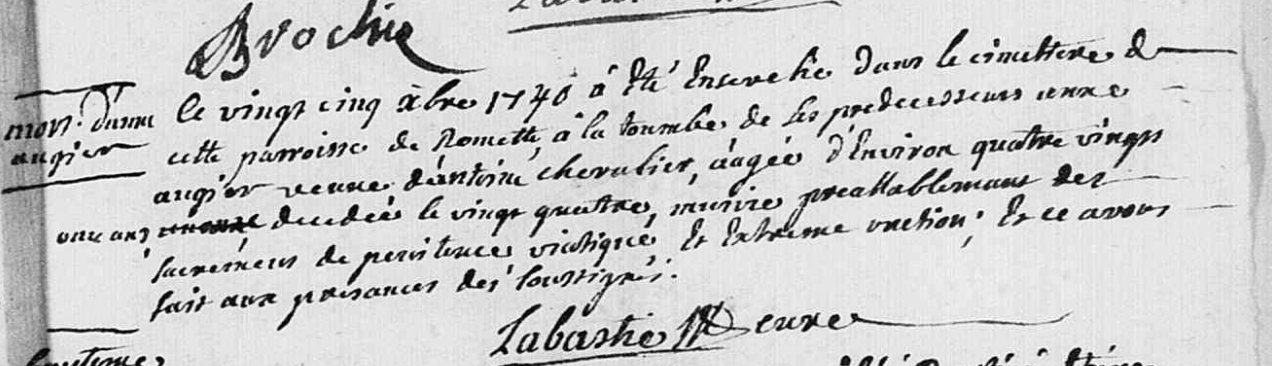 Brochie
mort d'anne
augier
le vingt cinq xbre 1740 a Eté Enserelie dans le cimettere de
cette parroisse de Romette, a la toumbe de ses predecesseurs anne
augier veuve d'antoine chevalier, aagée d'Environ quatre vingts
onze ans decedée le vingt quatre, munie preallablemant des
sacremens de penitence viatique Et Extreme onction; Et ce avons
fait aux presances des soussignés.
Labastie curé